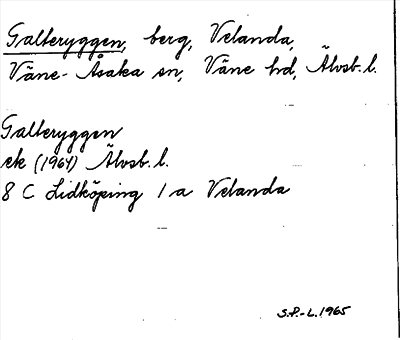 Galteryggen, berg, Velanda,
Väne-Åsaka sn, Väne hd, Älvsb. l.
Galteryggen
ek (1964) Älvsb. l.
8 C Lidköping 1 a Velanda
S.P.-L. 1965